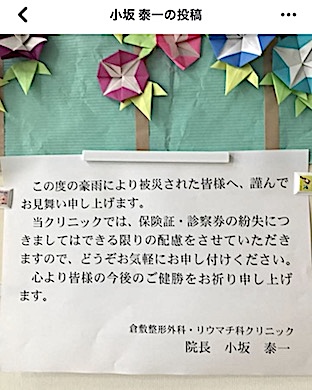 小坂 泰一の投稿
この度の豪雨により被災された皆様へ、謹んで
お見舞い申し上げます。
当クリニックでは、保険証・診察券の紛失につ
きましてはできる限りの配慮をさせていただき
ますので、どうぞお気軽にお申し付けください。
心より皆様の今後のご健勝をお祈り申し上げ
ます。
倉敷整形外科・リウマチ科クリニック
院長 小坂 泰一